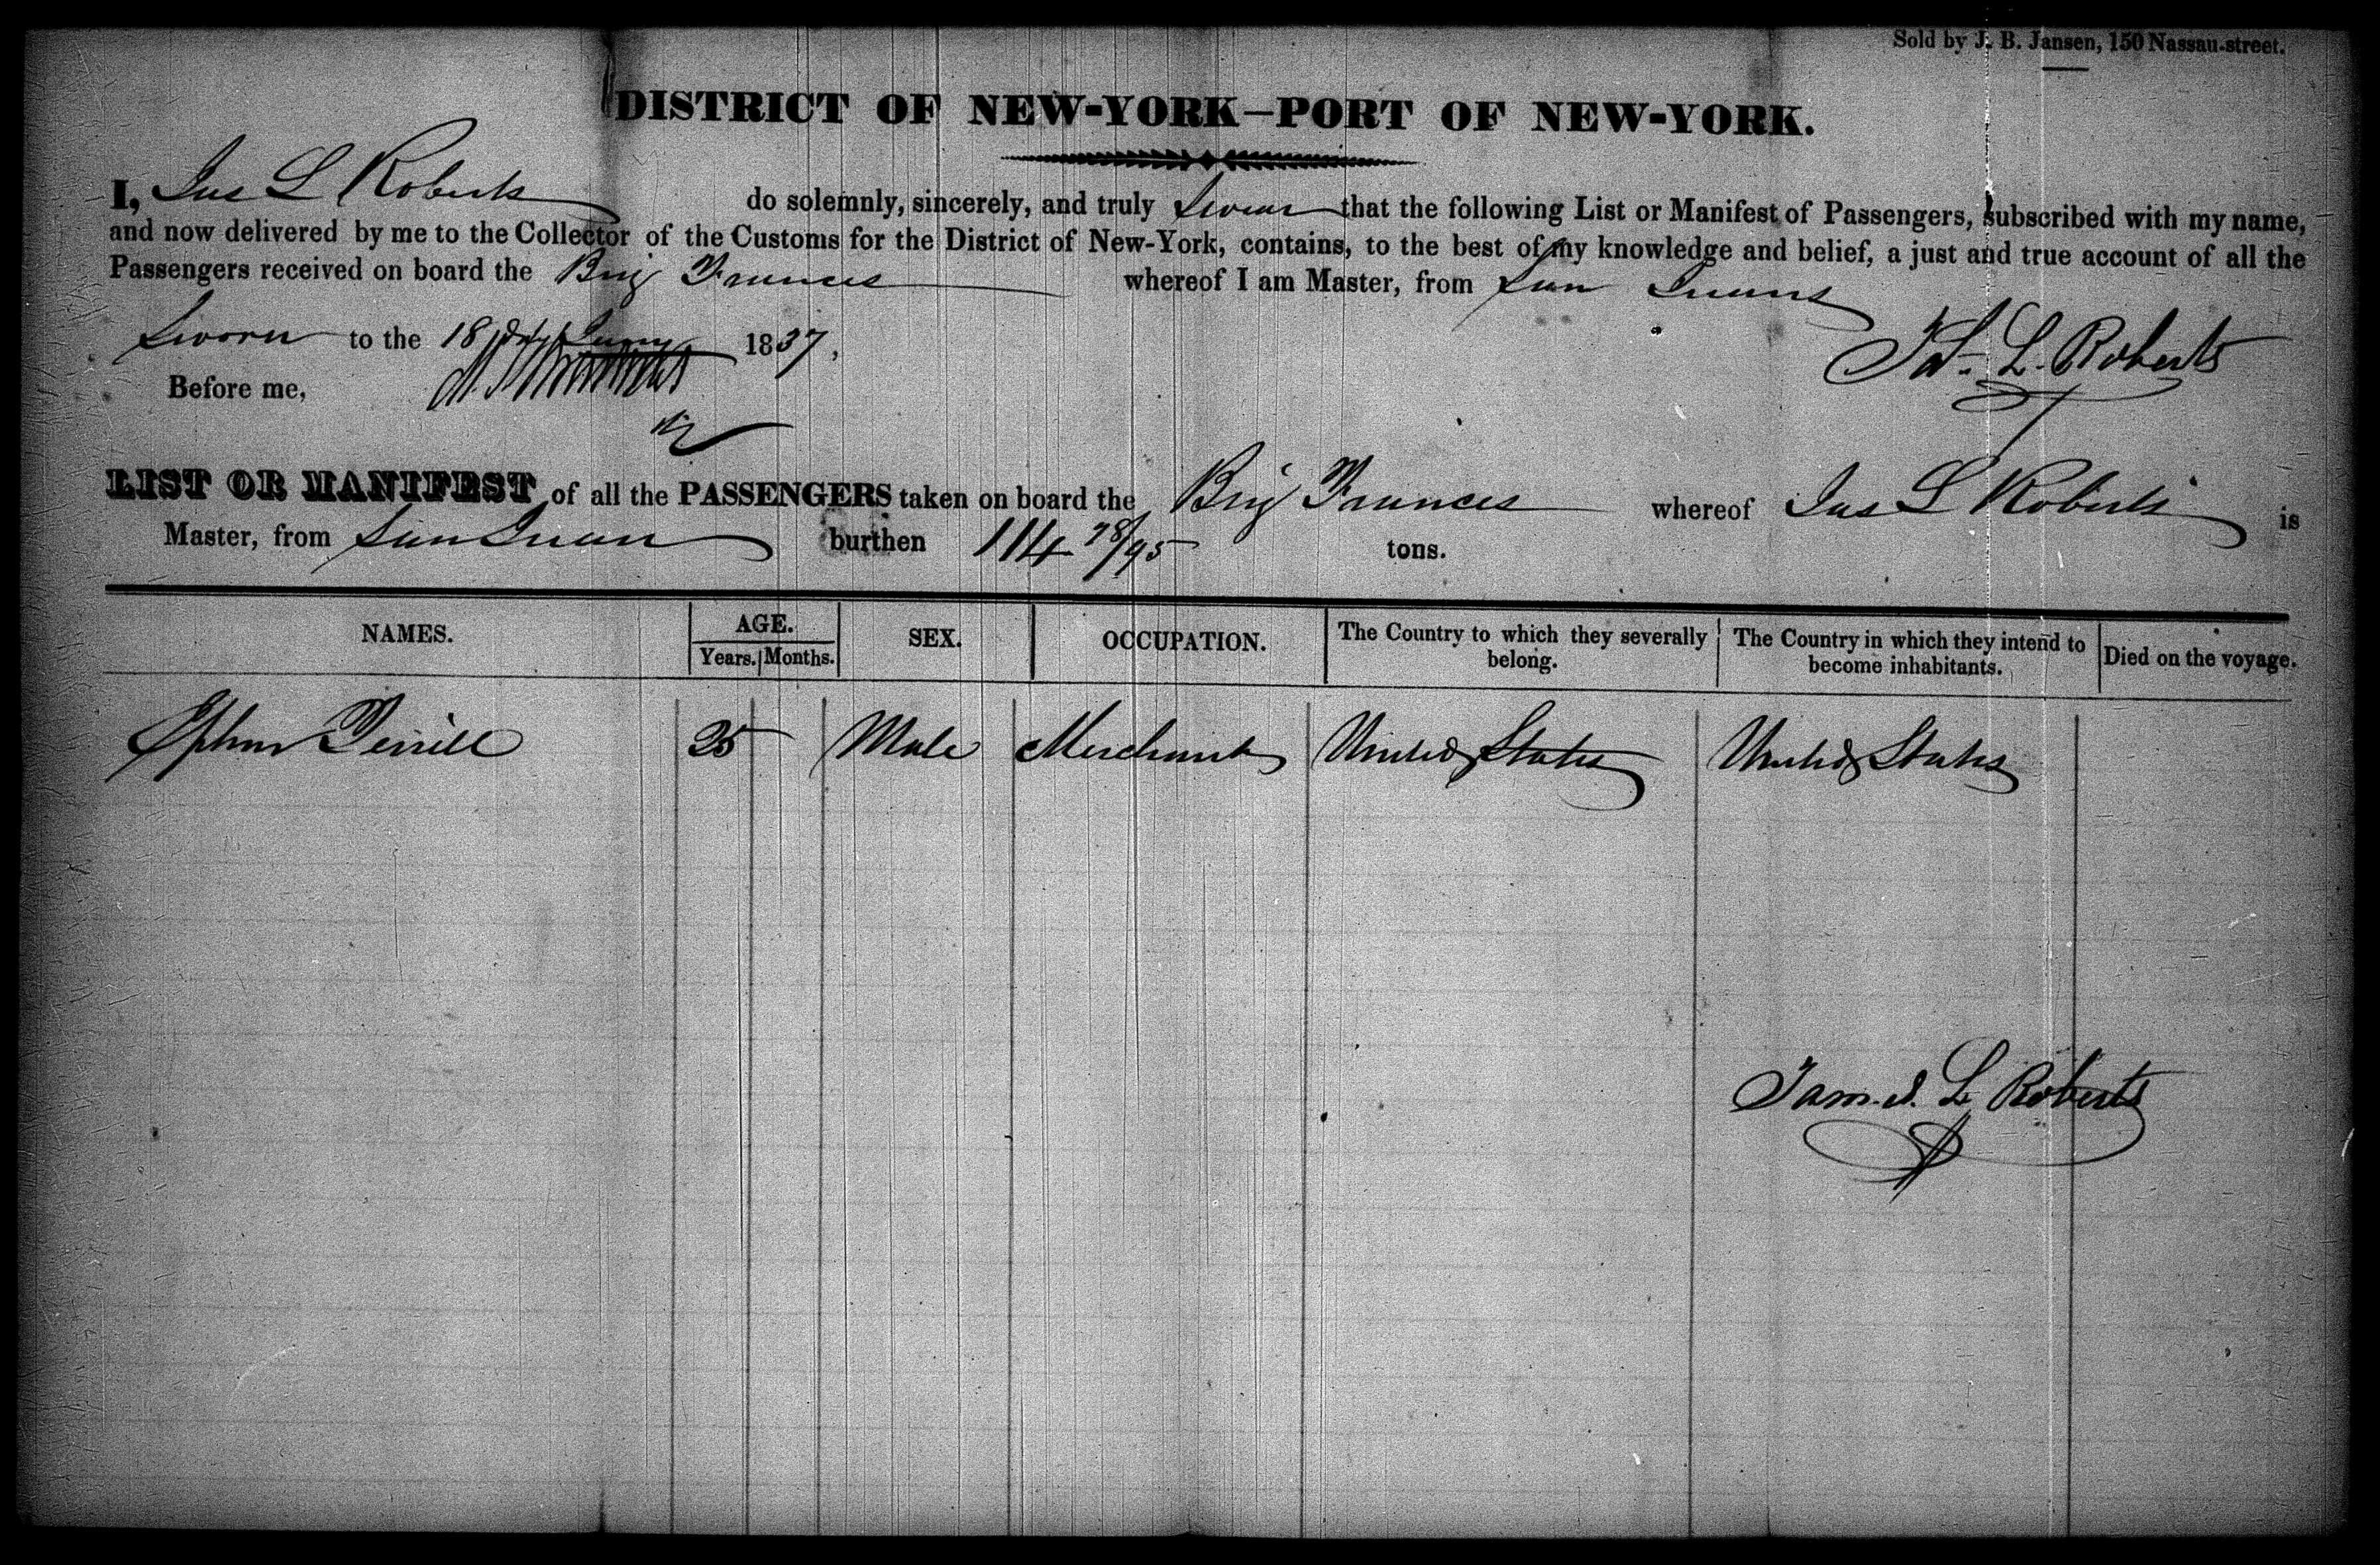 Sold by J. B. Jansen, 150 Nassau-street.
DISTRICT OF NEW-YORK—PORT OF NEW-YORK.
I, Jas L Roberts do solemnly, sincerely, and truly Swear that the following List or Manifest of Passengers, subscribed with my name,
and now delivered by me to the Collector of the Customs for the District of New-York, contains, to the best of my knowledge and belief, a just and true account of all the
Passengers received on board the Brig Frances whereof I am Master, from San Juans
Sworn to the 18 day 1837,
Jas. L. Roberts
Before me,
LIST OR MANIFEST of all the PASSENGERS taken on board the Brig Frances whereof Jas L Roberts is
Master, from San Juan burthen 114 78/95 tons.
NAMES. AGE. SEX. OCCUPATION. The Country to which they severally belong. The Country in which they intend to become inhabitants. Died on the voyage.
Years. Months.
Ephm 25 Male Merchant United States United States
James. L Roberts